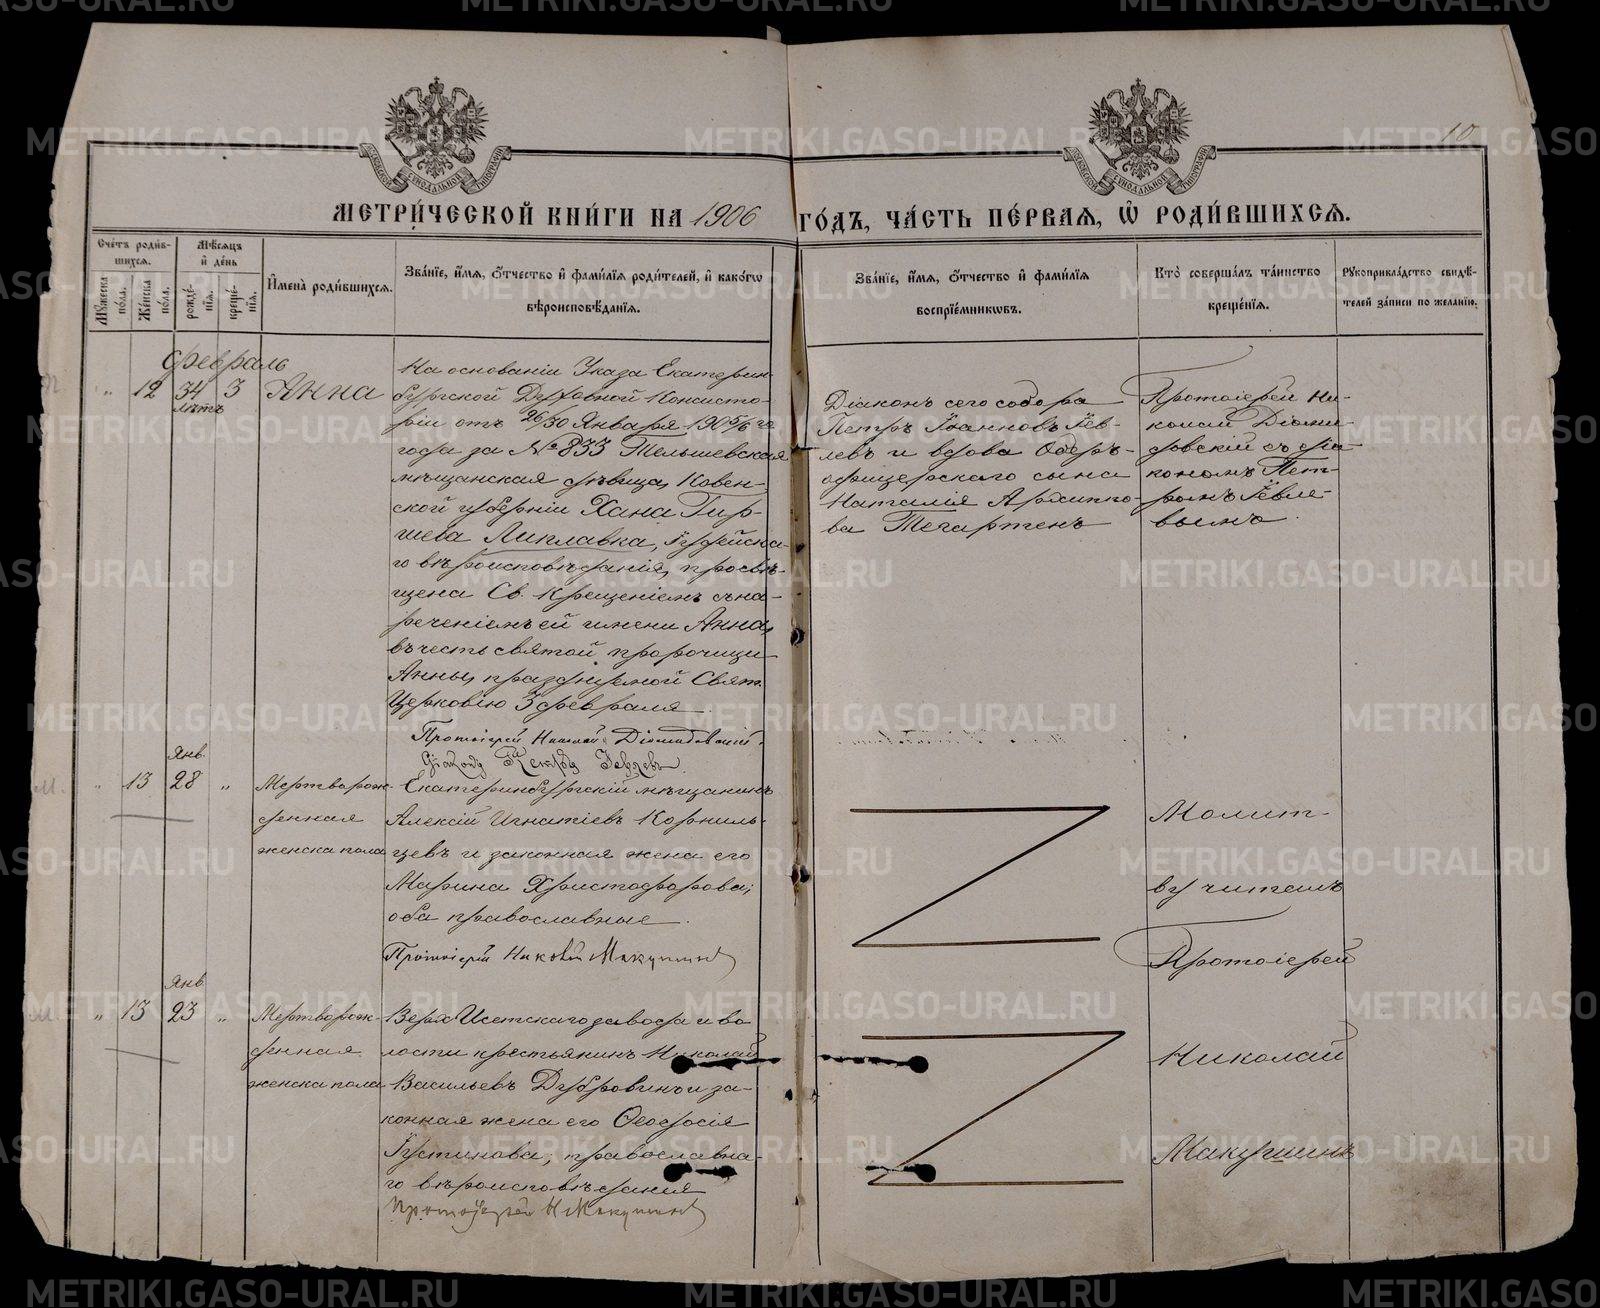 10
МЕТРИ́ЧЕСКОЙ КНИ́ГИ НА 1906 ГО́ДЪ, ЧА́СТЬ ПЕ́РВАЯ, Ѽ РОДИ́ВШИХСЯ.
Сче́тъ роди́в-
шихся.
Мꙋжеска пола.
Же́нска пола.
Мѣ́сяцъ
и҆ де́нь
рожде́-
нїя.
креще́-
нїя.
И҆мена̀ роди́вшихся.
Зва́нїе, и҆́мя, ѻ҆́тчество и҆ фами́лїя роди́телей, и҆ како́гѡ
вѣроисповѣ́данїя.
Зва́нїе, и҆́мя, ѻ҆́тчество и҆ фами́лїя
воспрїе́мникѡвъ.
Кто̀ соверша́лъ та́инство
креще́нїя.
Рꙋкоприкла́дство свидѣ́-
телей за́писи по жела́нїю.
Февраль
" 12 34 3 Анна
лѣтъ
На основаніи Указа Екатерин-
бургской Духовной Консисто-
ріи отъ 26/30 Января 1905/6 го
года за № 833 Тельшевская
мѣщанская дѣвица, Ковен-
ской губерніи Хана Гир-
шева Липлавка, Іудейска-
го вѣроисповѣданія, просвѣ-
щена Св. Крещеніемъ съ на-
реченіемъ ей имени Анна,
въ честь святой пророчицы
Анны, празднуемой Свят.
Церковію 3 февраля.
Протоіерей Николай Діомидовскій.
Діаконъ Петръ Іевлевъ
Діаконъ сего собора
Петръ Іоанновъ Іев-
левъ и вдова Оберъ-
офицерскаго сына
Наталія Архиппо-
ва Тегартенъ
Протоіерей Ни-
колай Діоми-
довскій съ діа-
кономъ Пет-
ромъ Іевле-
вымъ.
Янв.
" 13 28 " Мертворож-
денная
женска пола
Екатеринбургскій мѣщанинъ
Алексій Игнатіевъ Корниль-
цевъ и законная жена его
Марина Христофорова;
оба православные.
Протоіерей Николай Макушинъ
Молит-
ву читалъ
Протоіерей
Янв
" 13 23 " Мертворож-
денная
женска пола
Верх Исетскаго завода и во
лости крестьянинъ Николай
Васильевъ Дубровинъ и за-
конная жена его Ѳеодосія
Іустинова; православна-
го вѣроисповѣданія
Протоіерей Н Макушинъ
Николай
Макушинъ
METRIKI.GASO-URAL.RU